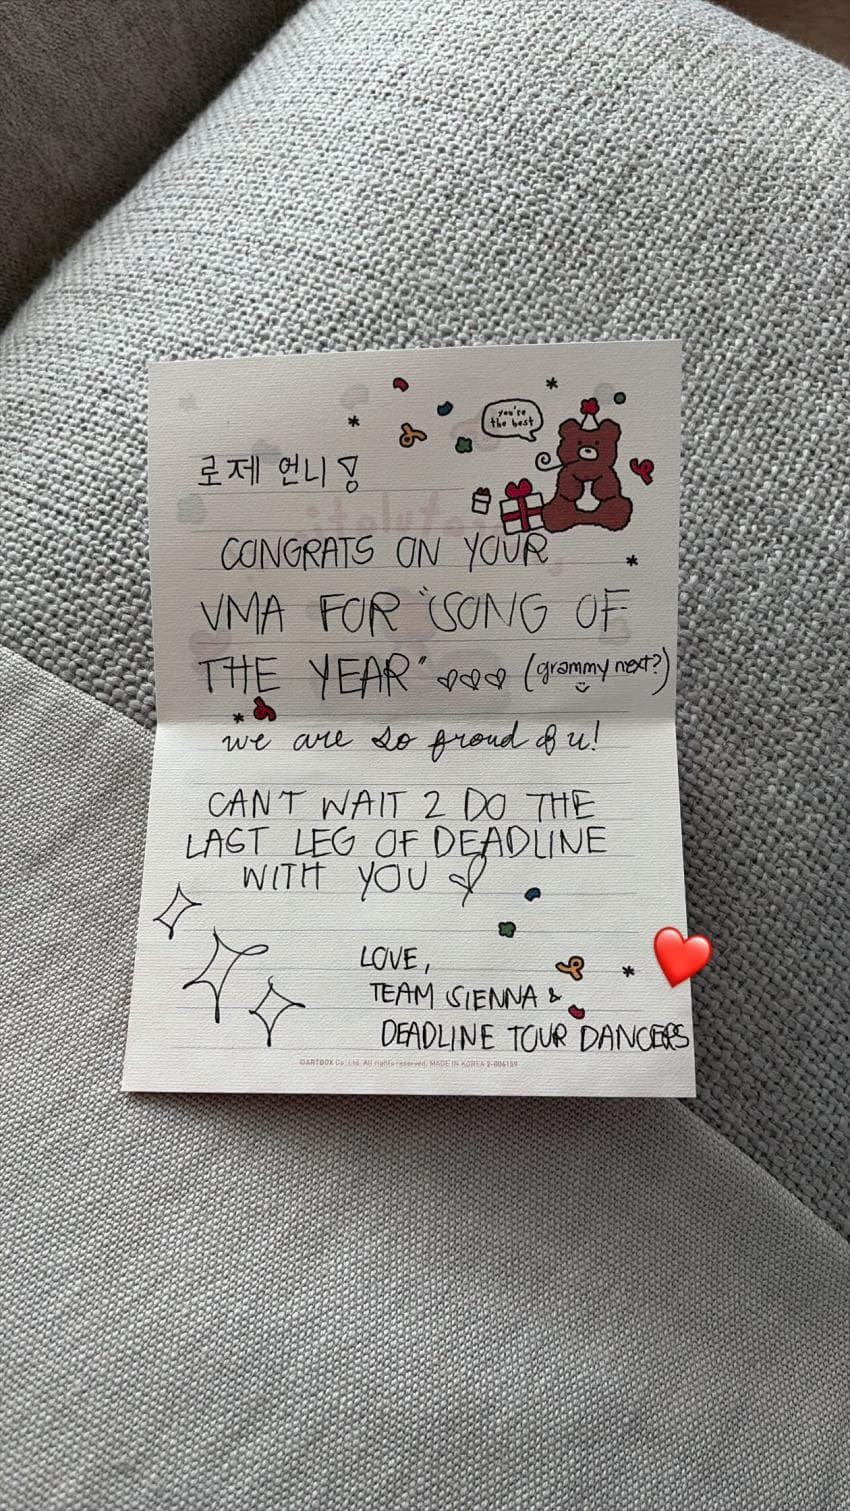 you're
the best
로제 언니!
CONGRATS ON YOUR
VMA FOR "SONG OF
THE YEAR" ♡♡♡ (grammy next?)
we are so proud of u!
CAN'T WAIT 2 DO THE
LAST LEG OF DEADLINE
WITH YOU ♡
LOVE,
TEAM SIENNA &
DEADLINE TOUR DANCERS
©ARTBOX Co., Ltd. All rights reserved. MADE IN KOREA